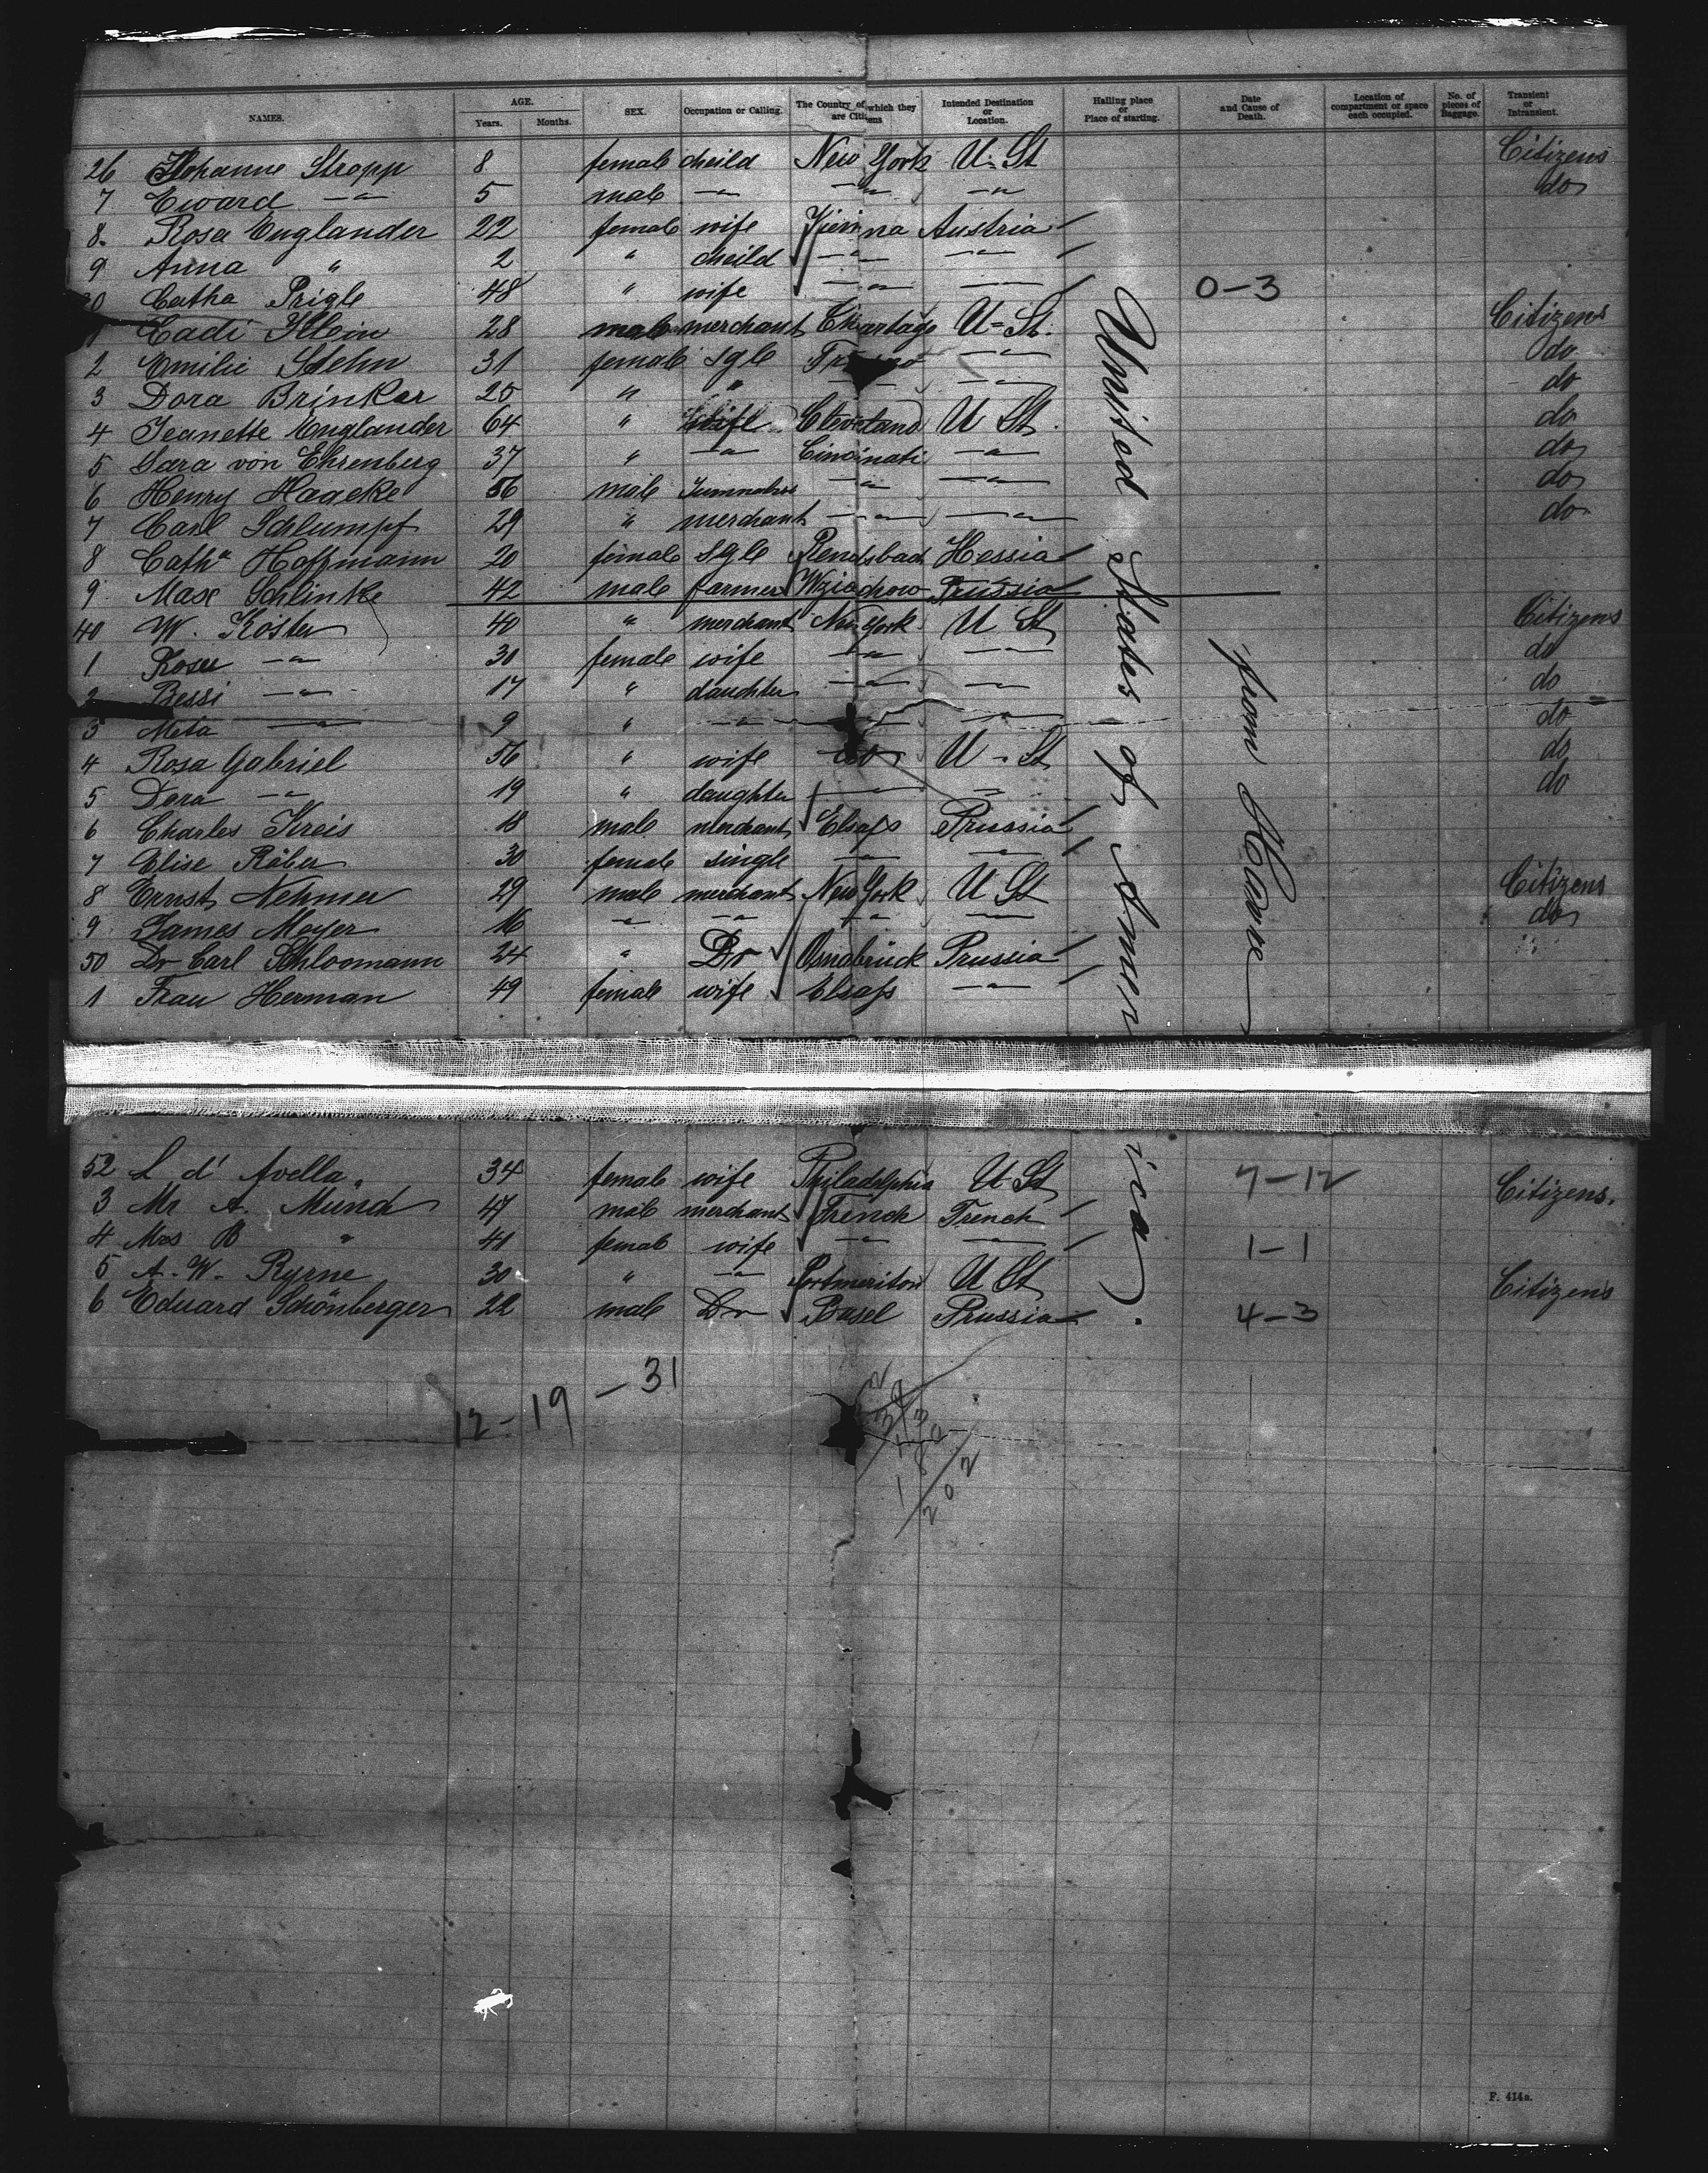 NAMES. AGE. Years. Months. SEX. Occupation or Calling. The Country of which they are Citizens Intended Destination or Location. Hailing place or Place of starting. Date and Cause of Death. Location of compartment or space each occupied. No. of pieces of Baggage. Transient or Intransient.
26 Johanne Stropp 8 female cheild New York U. St Citizens
7 Eward —"— 5 male —"— —"— —"— do
8. Rosa Englander 22 female wife Vienna Austria
9 Anna " 2 " cheild —"— —"—
30 Catha Prigle 48 " wife —"— —"— 0-3
Cadi Klein 28 male merchant U-St. Citizens
2 Emilie Stehn 31 female sgle —"— do
3 Dora Brinker 25 " " —"— do
4 Jeanette Englander 64 " wife Cleveland U St. do
5 Sara von Ehrenberg 37 " —"— Cincinati —"— do
6 Henry Haacke 56 male —"— —"— do
7 Carl Schlumpf 29 " merchant —"— —"— do
8 Cath^a Hoffmann 20 female sgle Rendsbad Hessia
9 Max Schlinke 42 male farmer Wziachow Prussia
40 W. Köster 40 " merchant New York U St Citizens
1 Rosa —"— 30 female wife —"— —"— do
2 Bessi —"— 17 " daughter —"— —"— do
3 Meta —"— 9 " —"— —"— —"— do
4 Rosa Gabriel 56 " wife do U - St do
5 Dora —"— 19 " daughter —"— —"— do
6 Charles Kreis 18 male merchant Elsass Prussia
7 Elise Räber 30 female single —"— —"—
8 Ernst Nehmer 29 male merchant New York U St Citizens
9 James Meyer 16 —"— —"— —"— —"— do
50 Dr Carl Schloomann 24 " Dr Osnabrück Prussia
1 Frau Herman 49 female wife Elsass —"—
United States of America.
from Havre
52 L d' Avella 34 female wife Philadelphia U St 7-12 Citizens.
3 Mr A. Mund 47 male merchant French French
4 Mrs B " 41 female wife —"— —"— 1-1
5 A. W. Ryrne 30 " —"— Portmeriton U St Citizens
6 Eduard Schönberger 22 male Dr Basel Prussia 4-3
12-19-31
202
F. 414a.